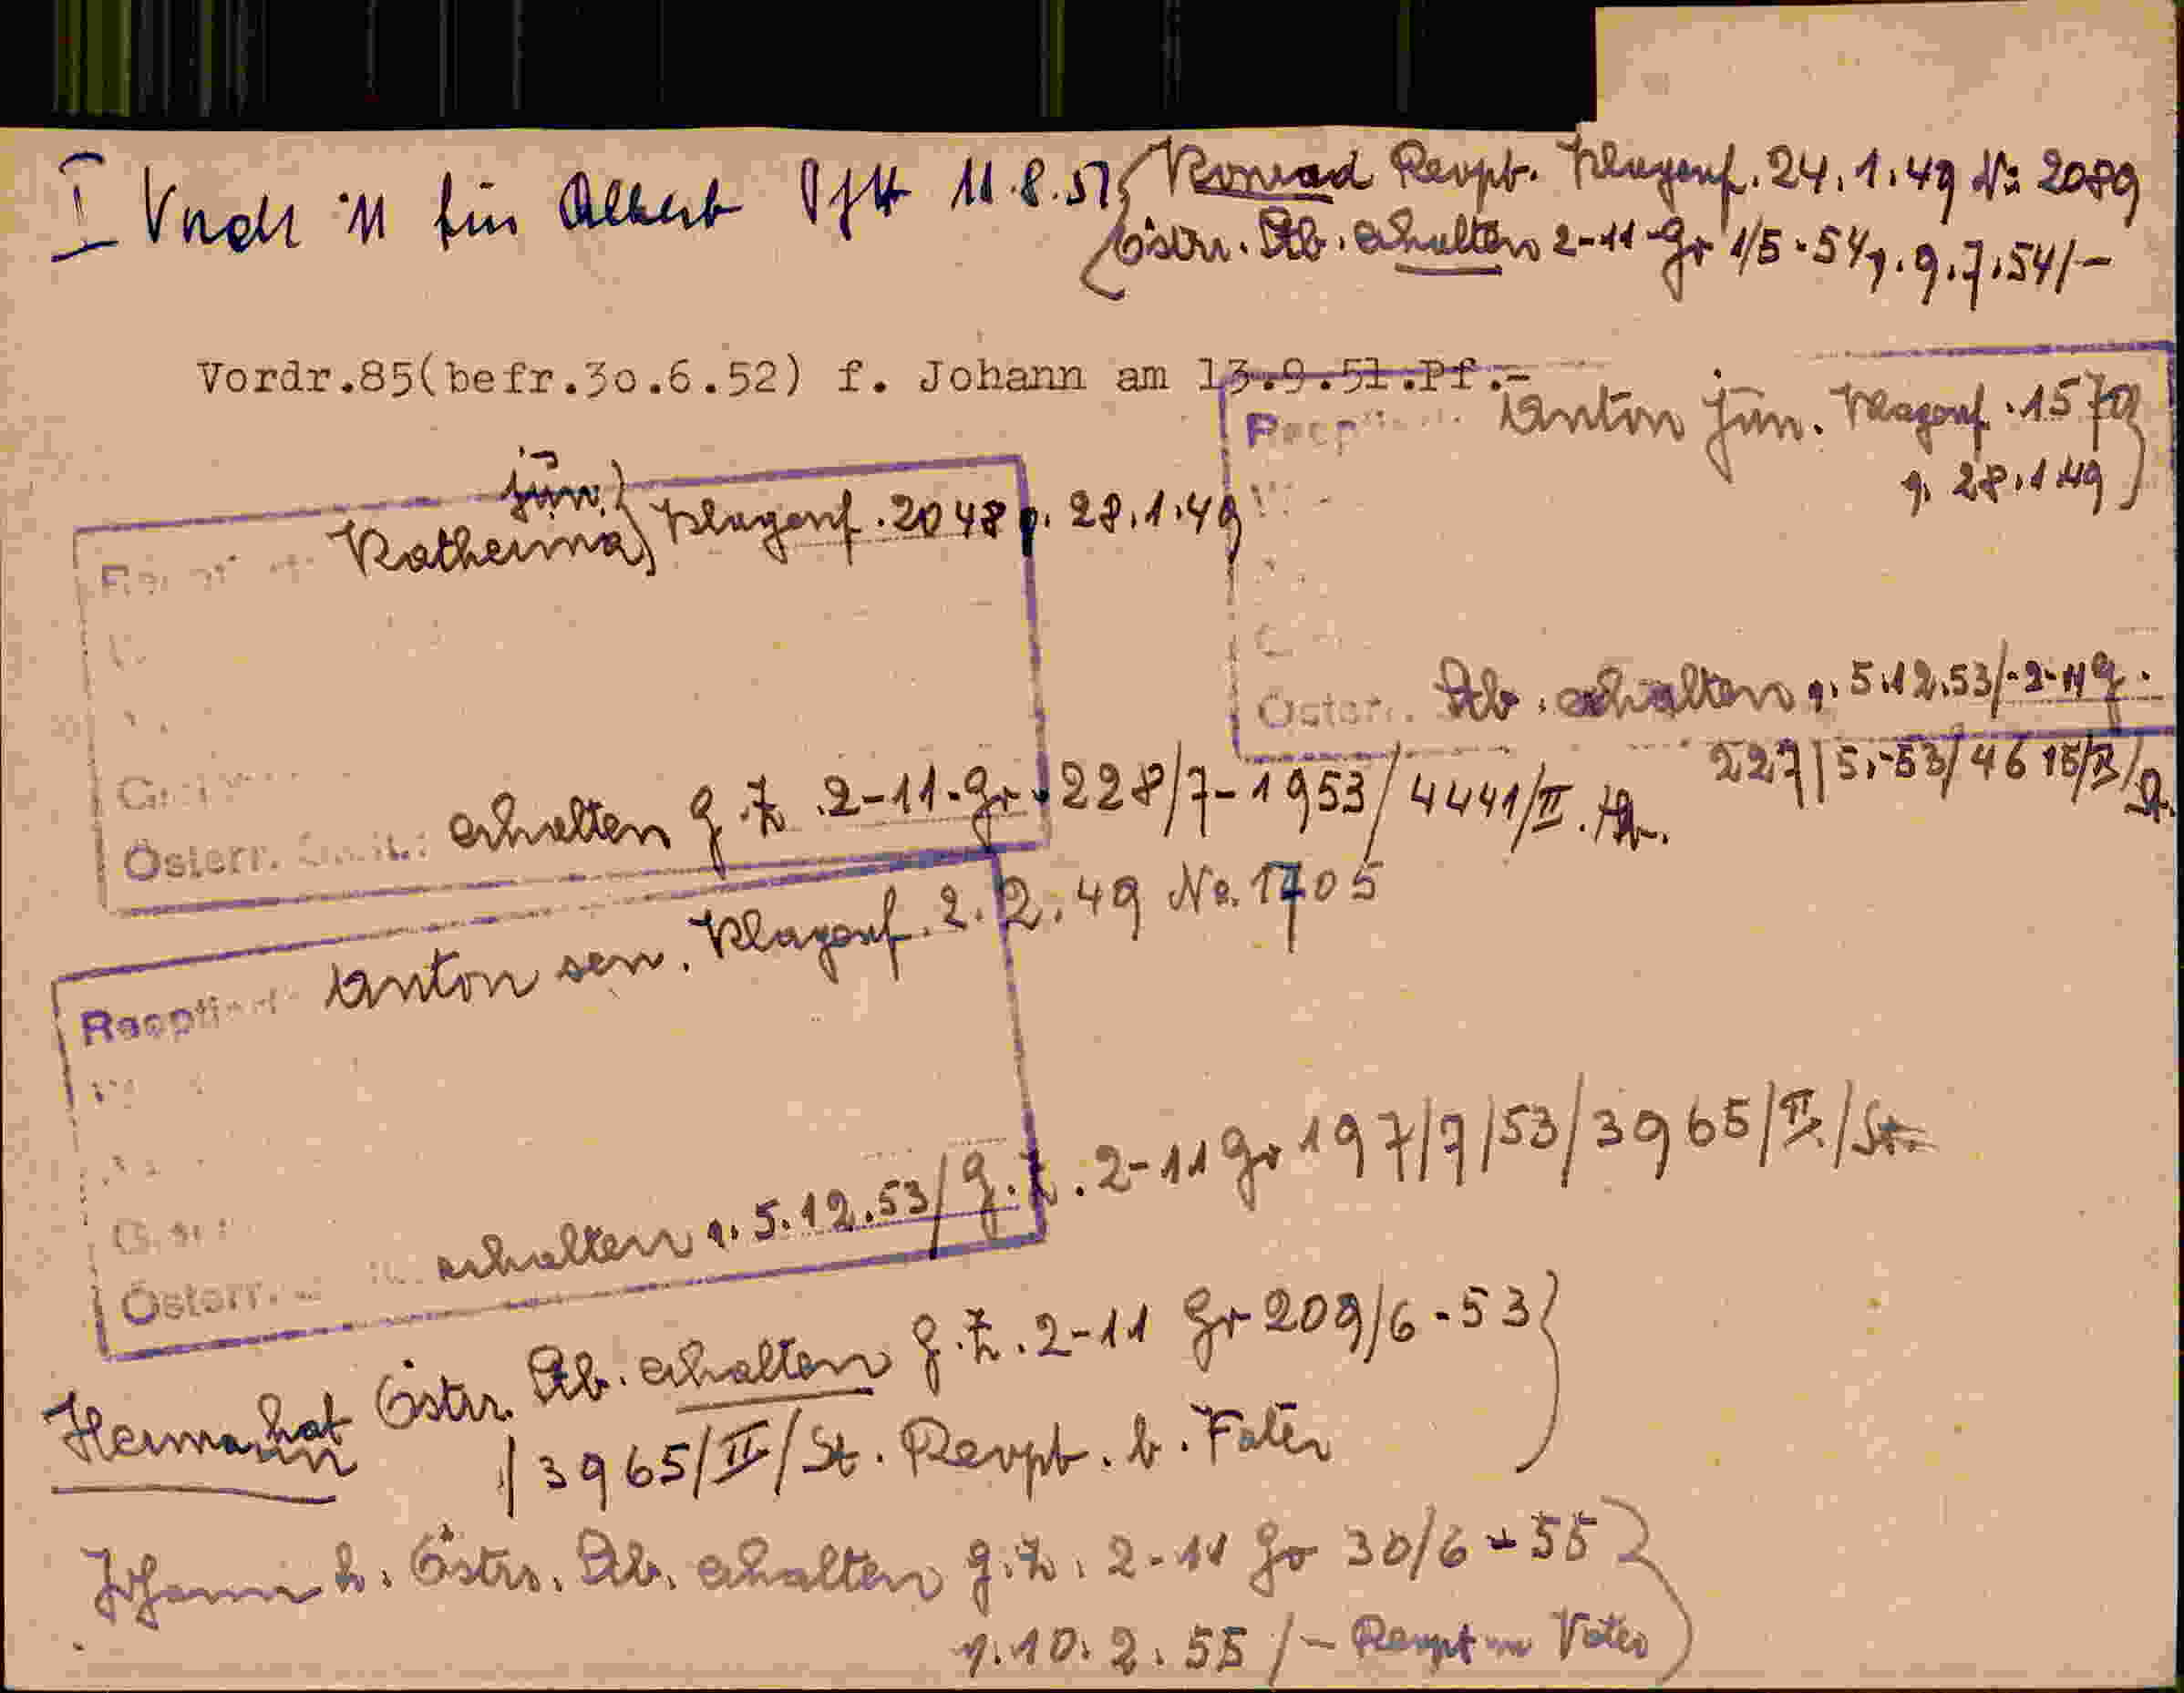 I Vordr 11 für Albert 11.8.51
Konrad Revpt. Klagenf. 24.1.49 Nr 2089
Östrr. Stb. erhalten 2-11-Gr 1/5-54 v. 9.7.54/-
Vordr.85(befr.30.6.52) f. Johann am 13.9.51.Pf.-
Anton jun. Klagenf. 1570
v. 28.1.49
jun.
Katherina Klagenf. 2048 v. 28.1.49
Österr. Stb. erhalten v. 5.12.53/-2-11 g.
227/5.-53/4615/II/St.
Österr. erhalten g.Z. 2-11-Gr. 228/7-1953/4441/II.
Anton sen. Klagenf. 2.2.49 No. 1705
Österr. erhalten v. 5.12.53/g.Z. 2-11 Gr 197/7/53/3965/II/St.
Hermann hat Östrr. Stb. erhalten g.Z. 2-11 Gr 209/6-53
/3965/II/St. Revpt. b. Fater
Johann h. Östrr. Stb. erhalten g.Z. 2-11 Gr 30/6-55
v. 10.2.55/- Revpt Vater